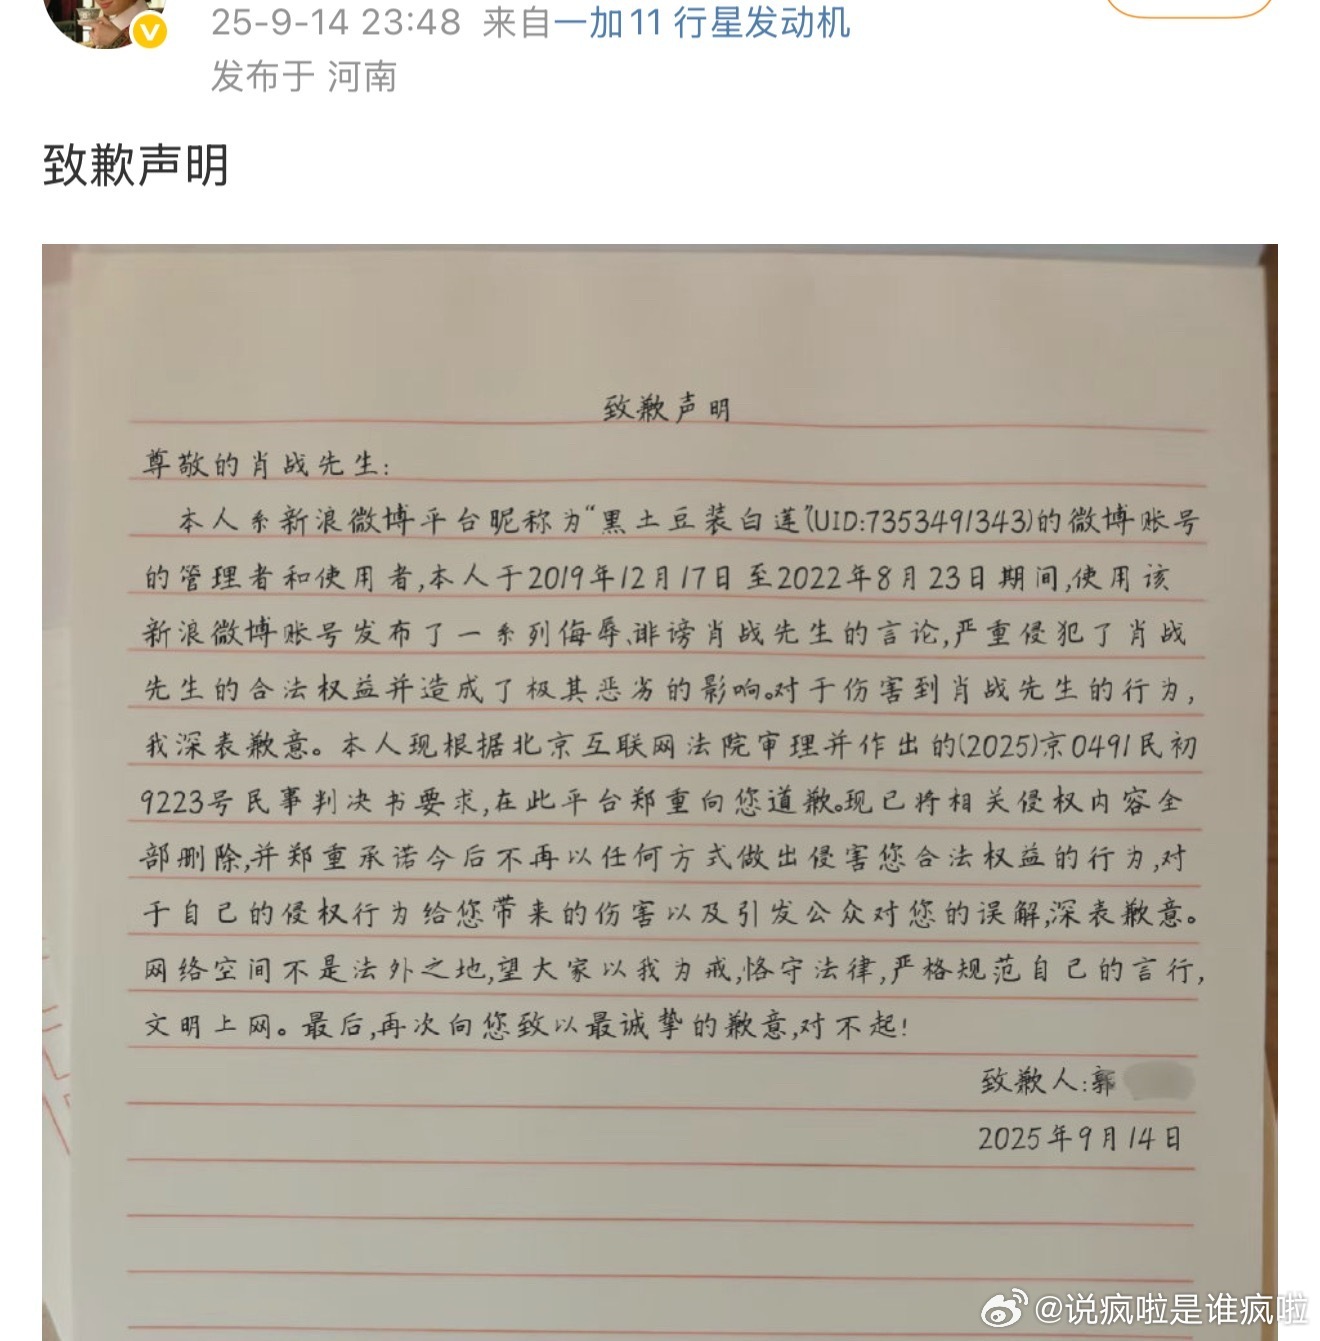 25-9-14 23:48 来自一加11 行星发动机
发布于 河南
致歉声明
致歉声明
尊敬的肖战先生:
本人系新浪微博平台昵称为“黑土豆装白莲”(UID:7353491343)的微博账号
的管理者和使用者,本人于2019年12月17日至2022年8月23日期间,使用该
新浪微博账号发布了一系列侮辱、诽谤肖战先生的言论,严重侵犯了肖战
先生的合法权益并造成了极其恶劣的影响。对于伤害到肖战先生的行为,
我深表歉意。本人现根据北京互联网法院审理并作出的(2025)京0491民初
9223号民事判决书要求,在此平台郑重向您道歉。现已将相关侵权内容全
部删除,并郑重承诺今后不再以任何方式做出侵害您合法权益的行为,对
于自己的侵权行为给您带来的伤害以及引发公众对您的误解,深表歉意。
网络空间不是法外之地,望大家以我为戒,恪守法律,严格规范自己的言行,
文明上网。最后,再次向您致以最诚挚的歉意,对不起!
致歉人:郭
2025年9月14日
@说疯啦是谁疯啦